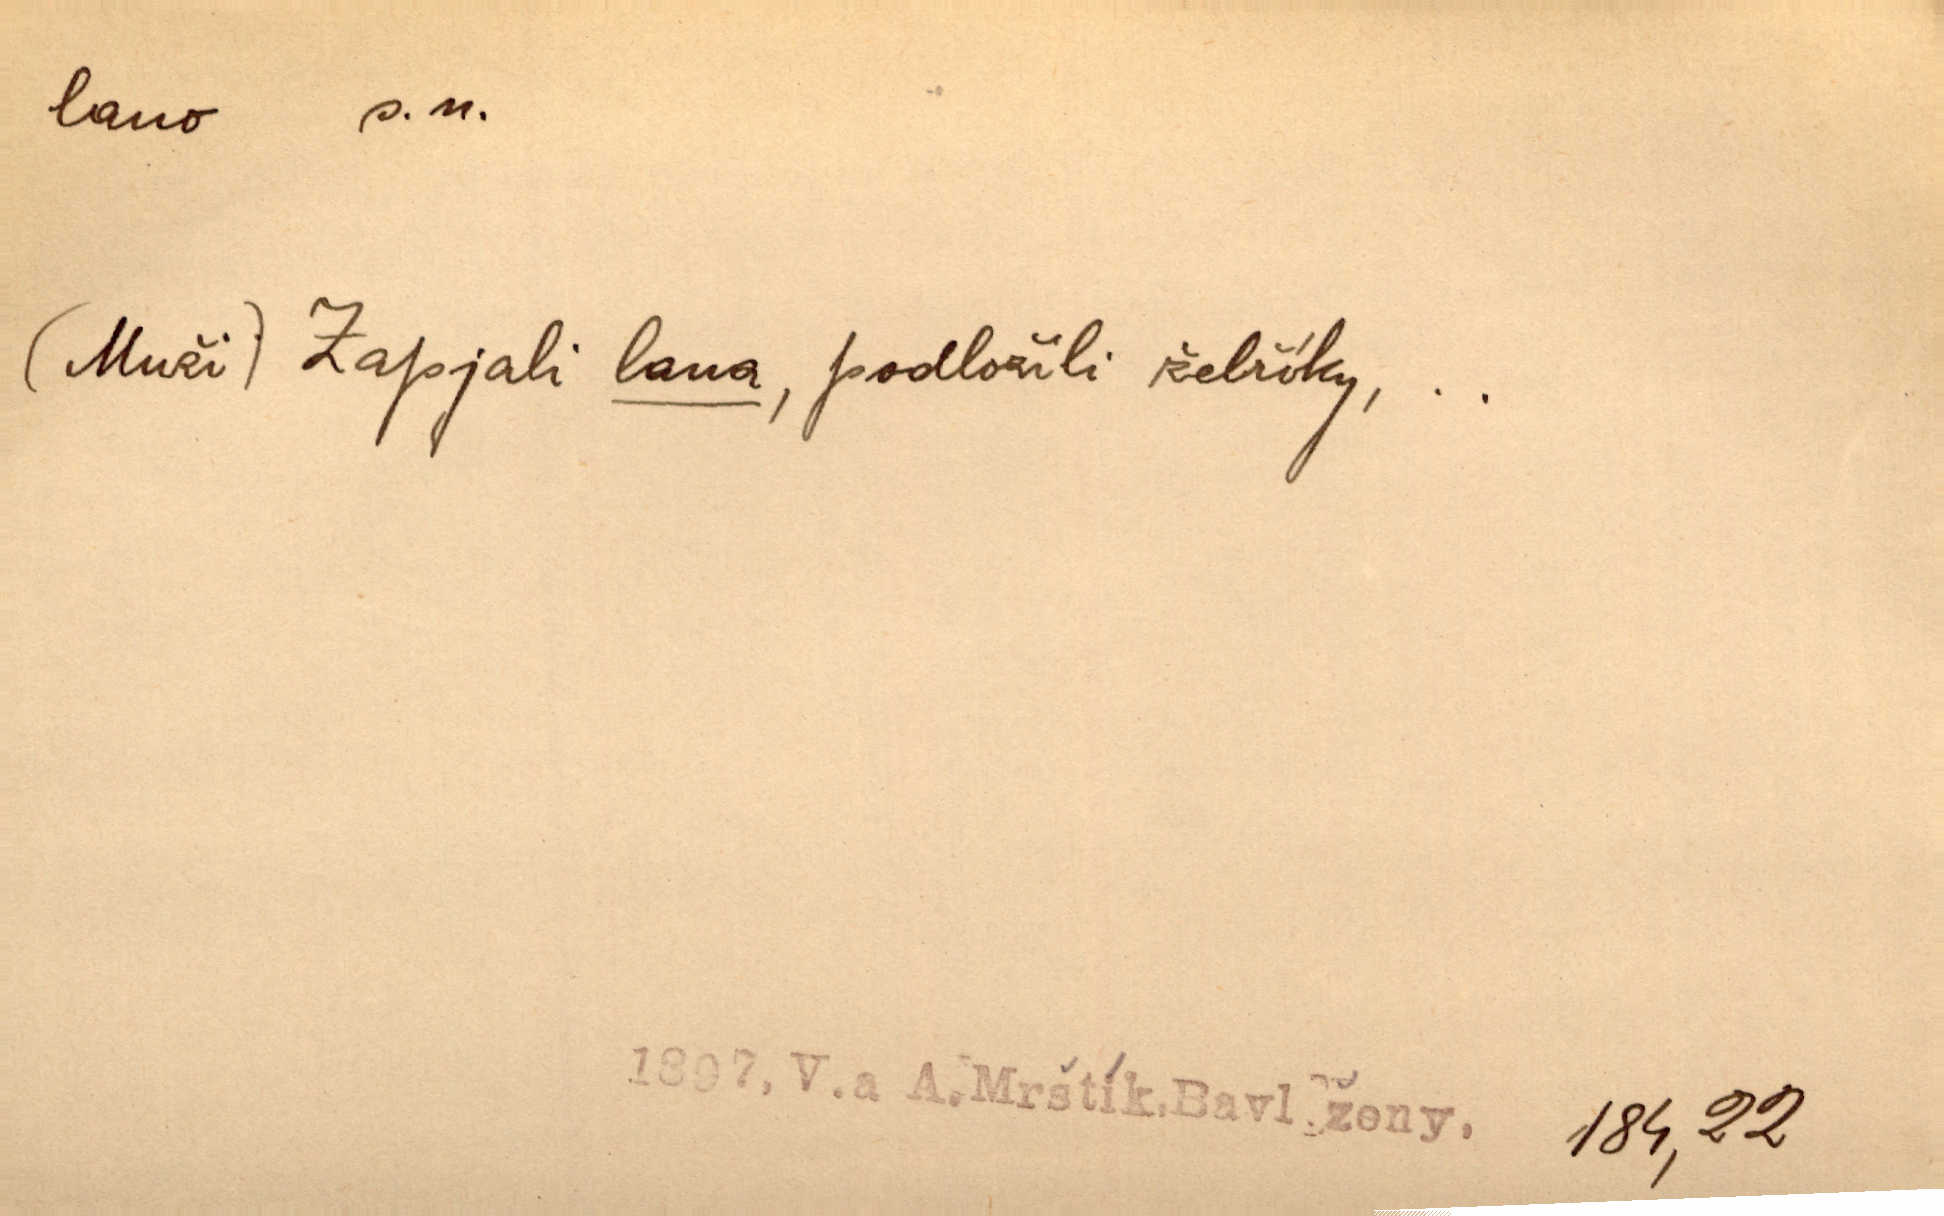 lano s. n.
(Muži) Zapjali lana, podložili žebříky, . .
1897, V. a A. Mrštík. Bavl. ženy.
184,22